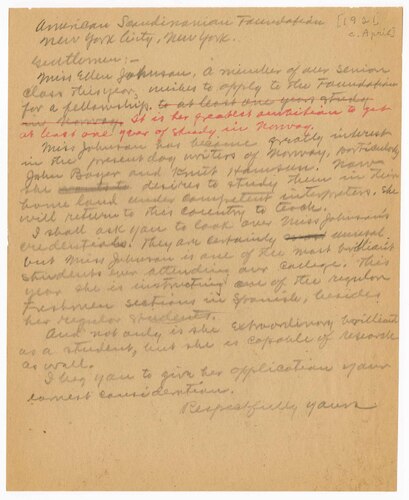 American Scandinavian Foundation [1921
New York City, New York. c. April]
Gentlemen:-
Miss Ellen Johnson, a member of our senior
class this year, wishes to apply to the Foundation
for a fellowship. to at least one years study
in Norway. It is her greatest ambition to get
at least one year of study in Norway.
Miss Johnson has become greatly interest
in the present day writers of Norway, particularly
John Bojer and Knut Hamsun.
She wants to desires to study them in their
home land under competent interpreters. She
will return to this country to teach.
I shall ask you to look over Miss Johnson's
credentials. They are certainly unusual,
but Miss Johnson is one of the most brilliant
students ever attending our College. This
year she is instructing one of the regular
Freshmen sections in Spanish, besides
her regular students.
And not only is she extraordinary brilliant
as a student, but she is capable of research
as well.
I beg you to give her application your
earnest consideration.
Respectfully yours